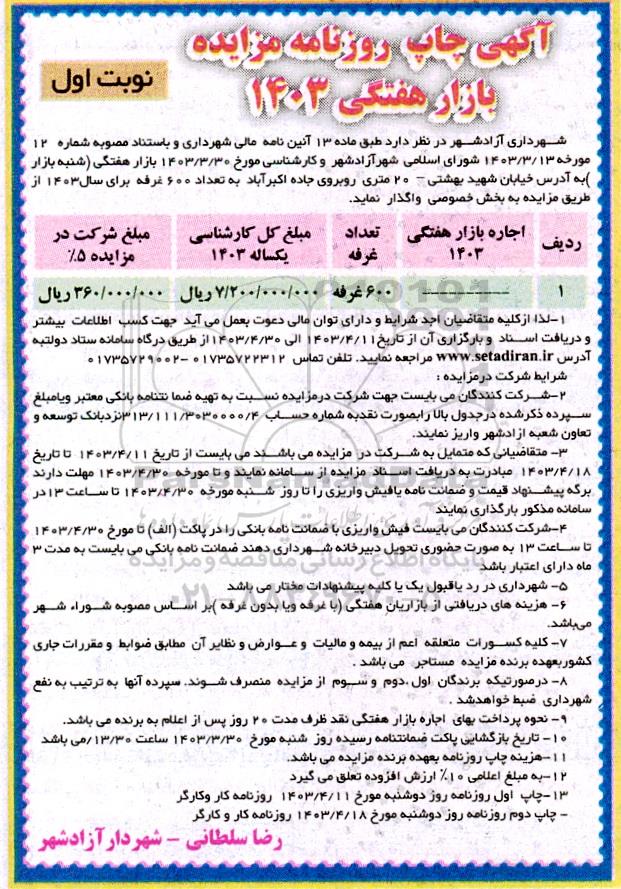 آگهی چاپ روزنامه مزایده
بازار هفتگی ۱۴۰۳
نوبت اول
شهرداری آزادشهر در نظر دارد طبق ماده ۱۳ آئین نامه مالی شهرداری و باستناد مصوبه شماره ۱۲
مورخه ۱۴۰۳/۳/۱۳ شورای اسلامی شهرآزادشهر و کارشناسی مورخ ۱۴۰۳/۳/۳۰ بازار هفتگی (شنبه بازار
)به آدرس خیابان شهید بهشتی – ۲۰ متری روبروی جاده اکبرآباد به تعداد ۶۰۰ غرفه برای سال۱۴۰۳ از
طریق مزایده به بخش خصوصی واگذار نماید.
ردیف اجاره بازار هفتگی ۱۴۰۳ تعداد غرفه مبلغ کل کارشناسی یکساله ۱۴۰۳ مبلغ شرکت در مزایده ۵٪
۱ ------------ ۶۰۰ غرفه ۷/۲۰۰/۰۰۰/۰۰۰ ریال ۳۶۰/۰۰۰/۰۰۰ ریال
۱-لذا ازکلیه متقاضیان واجد شرایط و دارای توان مالی دعوت بعمل می آید جهت کسب اطلاعات بیشتر
و دریافت اسناد و بارگزاری آن از تاریخ۱۴۰۳/۴/۱۱ الی ۱۴۰۳/۴/۳۰از طریق درگاه سامانه ستاد دولتبه
آدرس www.setadiran.ir مراجعه نمایید. تلفن تماس ۰۱۷۳۵۷۲۲۳۱۲ -۰۱۷۳۵۷۲۹۰۰۲
شرایط شرکت درمزایده :
۲-شرکت کنندگان می بایست جهت شرکت درمزایده نسبت به تهیه ضمانتنامه بانکی معتبر ویامبلغ
سپرده ذکرشده درجدول بالا رابصورت نقدبه شماره حساب ۳۱۳/۱۱۱/۳۰۳۰۰۰۰/۴نزدبانک توسعه و
تعاون شعبه ازادشهر واریز نمایند.
۳- متقاضیانی که متمایل به شرکت در مزایده می باشند می بایست از تاریخ ۱۴۰۳/۴/۱۱ تا تاریخ
۱۴۰۳/۴/۱۸ مبادرت به دریافت اسناد مزایده از سامانه نمایند و تا مورخه ۱۴۰۳/۴/۳۰ مهلت دارند
برگه پیشنهاد قیمت و ضمانت نامه یافیش واریزی را تا روز شنبه مورخه ۱۴۰۳/۴/۳۰ تا ساعت ۱۳در
سامانه مذکور بارگذاری نمایند
۴-شرکت کنندگان می بایست فیش واریزی یا ضمانت نامه بانکی را در پاکت (الف) تا مورخ ۱۴۰۳/۴/۳۰
تا ساعت ۱۳ به صورت حضوری تحویل دبیرخانه شهرداری دهند ضمانت نامه بانکی می بایست به مدت ۳
ماه دارای اعتبار باشد
۵- شهرداری در رد یاقبول یک یا کلیه پیشنهادات مختار می باشد
۶- هزینه های دریافتی از بازاریان هفتگی (با غرفه ویا بدون غرفه )بر اساس مصوبه شوراء شهر
می‌باشد.
۷- کلیه کسورات متعلقه اعم از بیمه و مالیات و عوارض و نظایر آن مطابق ضوابط و مقررات جاری
کشوربعهده برنده مزایده مستاجر می باشد .
۸- درصورتیکه برندگان اول ،دوم و سوم از مزایده منصرف شوند. سپرده آنها به ترتیب به نفع
شهرداری ضبط خواهدشد .
۹- نحوه پرداخت بهای اجاره بازار هفتگی نقد ظرف مدت ۲۰ روز پس از اعلام به برنده می باشد.
۱۰- تاریخ بازگشایی پاکت ضمانتنامه رسیده روز شنبه مورخ ۱۴۰۳/۳/۳۰ ساعت ۱۳/۳۰/می باشد
۱۱-هزینه چاپ روزنامه بعهده برنده مزایده می باشد.
۱۲-به مبلغ اعلامی ۱۰٪ ارزش افزوده تعلق می گیرد
۱۳-چاپ اول روزنامه روز دوشنبه مورخ ۱۴۰۳/۴/۱۱ روزنامه کار وکارگر
- چاپ دوم روزنامه روز دوشنبه مورخ ۱۴۰۳/۴/۱۸ روزنامه کار و کارگر
رضا سلطانی – شهردار آزادشهر
ParsNamadData
پایگاه اطلاع رسانی مناقصه و مزایده